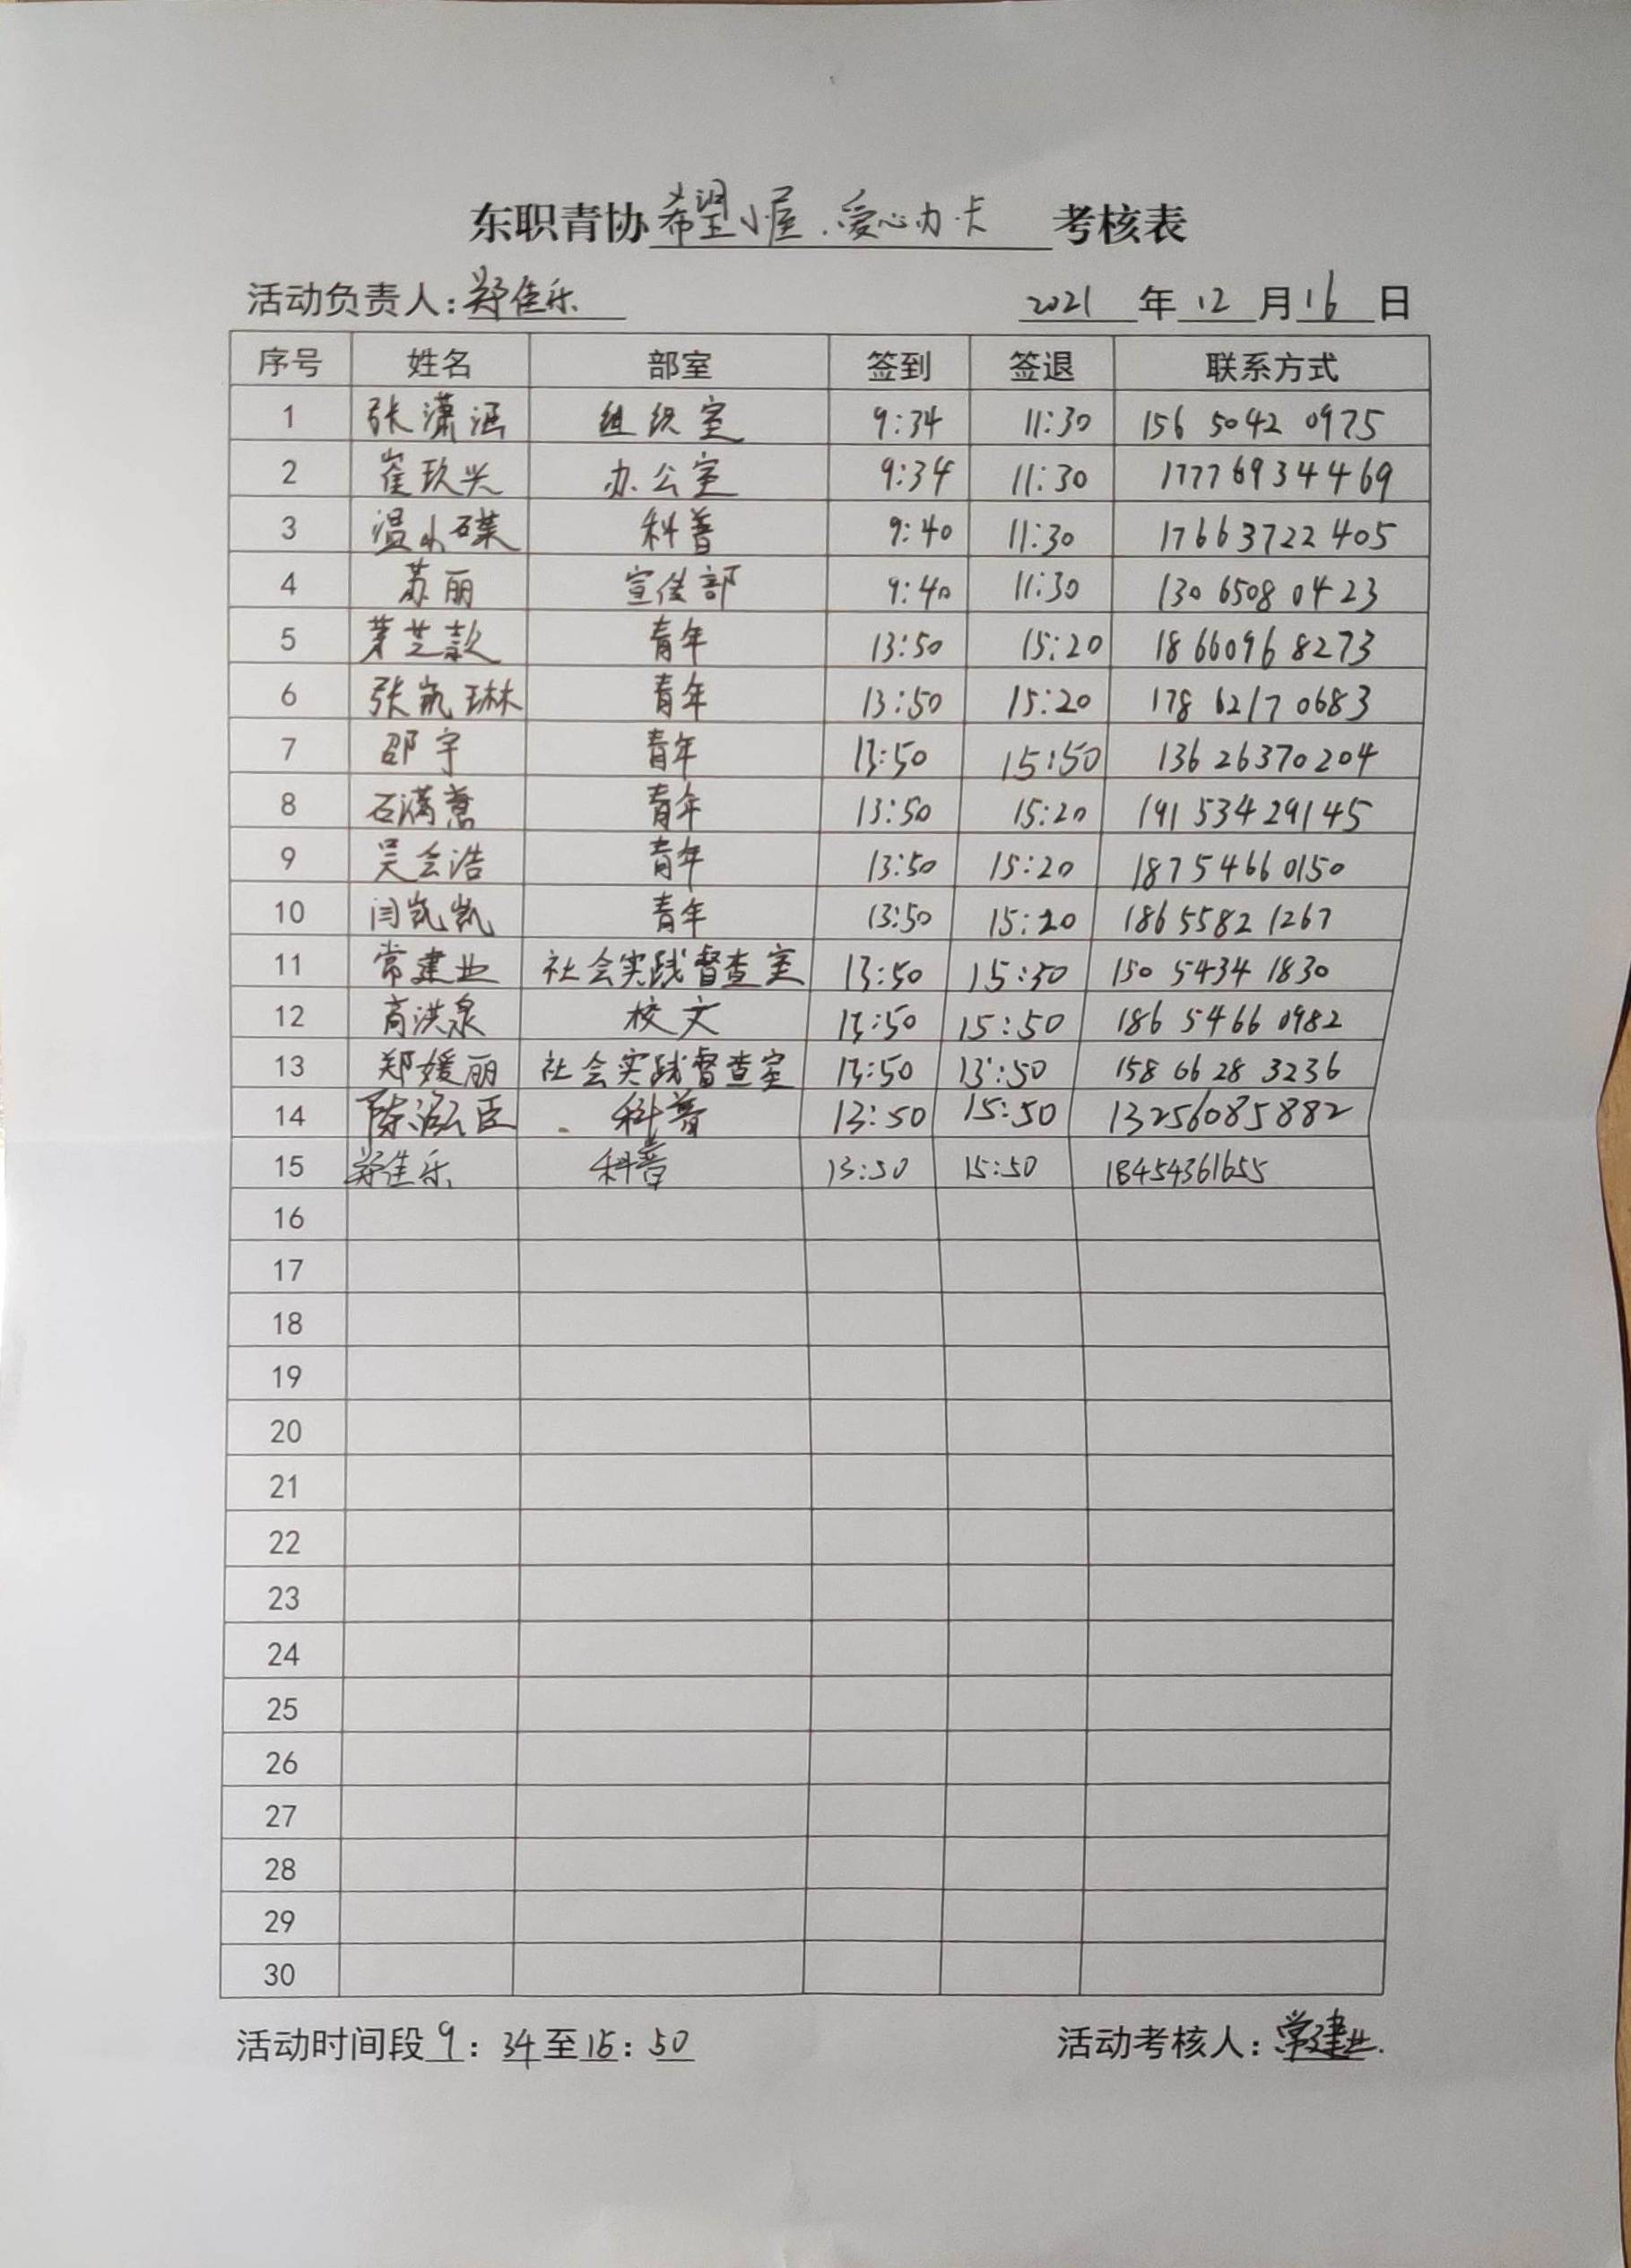 东职青协希望小屋.爱心办卡考核表
活动负责人:郑佳乐 2021年12月16日
序号 姓名 部室 签到 签退 联系方式
1 张潇涵 组织室 9:34 11:30 156 5042 0975
2 崔玖兴 办公室 9:34 11:30 17776934469
3 温小碟 科普 9:40 11:30 17663722405
4 苏丽 宣传部 9:40 11:30 130 6508 0423
5 青年 13:50 15:20 18660968273
6 张凯琳 青年 13:50 15:20 178 6217 0683
7 邵宇 青年 13:50 15:50 136 26370204
8 石满意 青年 13:50 15:20 191 534 29145
9 吴会浩 青年 13:50 15:20 1875466 0150
10 闫凯凯 青年 13:50 15:20 186 5582 1267
11 常建业 社会实践督查室 13:50 15:50 150 5434 1830
12 高洪泉 校文 13:50 15:50 186 5466 0982
13 郑媛丽 社会实践督查室 13:50 13:50 158 66 28 3236
14 陈泓臣 科普 13:50 15:50 13256085882
15 郑佳乐 科普 13:50 15:50 18454361655
16
17
18
19
20
21
22
23
24
25
26
27
28
29
30
活动时间段9:34至15:50 活动考核人:常建业.